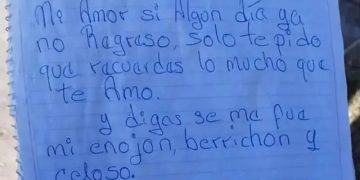 Me Amor si Algun día ya
no Ragraso, solo te pido
que racuardas lo mucho que
te Amo.
y digas se ma fua
mi enojon, berrichon y
celoso.